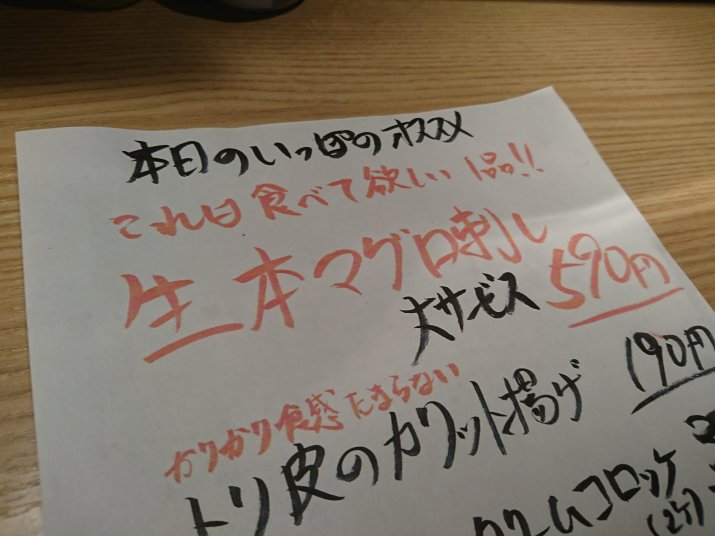 本日のいっぽのオススメ
これは食べて欲しい1品!!
生本マグロ刺し
大サービス 590円
カリカリ食感たまらない
トリ皮のカリット揚げ 190円
クリームコロッケ
(2ケ)